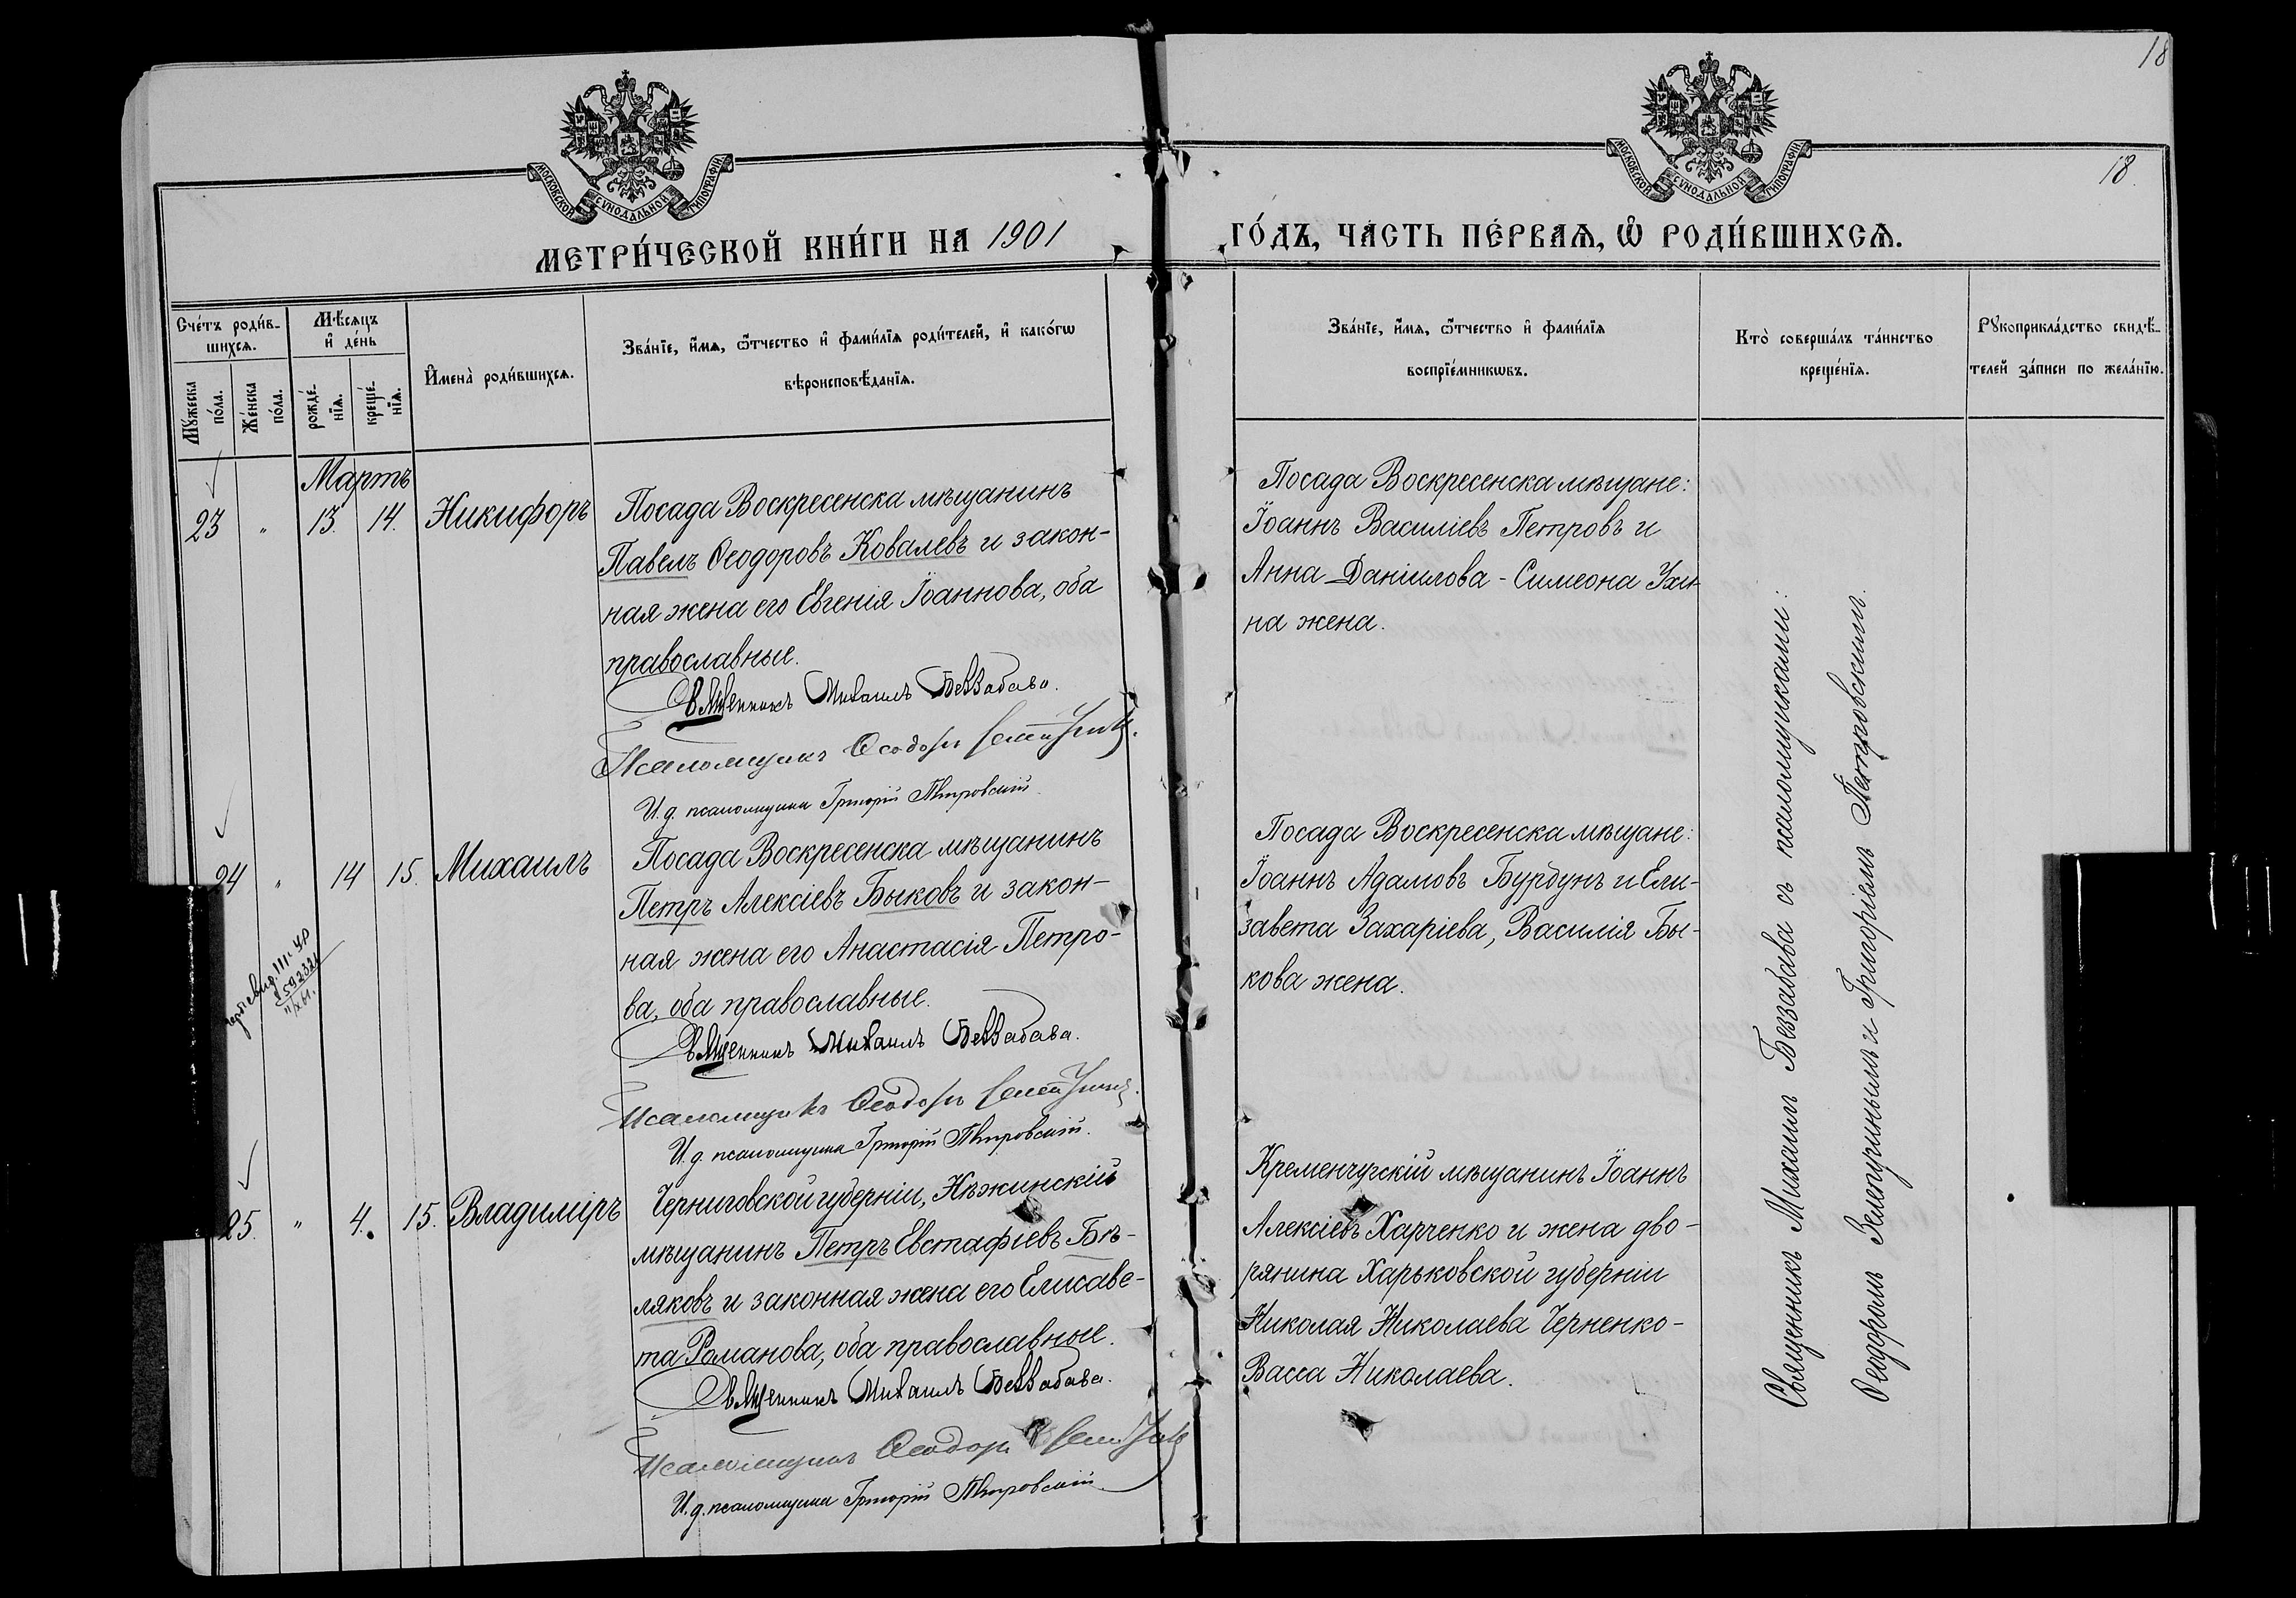 18
18.
МОСКОВСКОЙ СѴНОДАЛЬНОЙ ТИПОГРАФІИ
МОСКОВСКОЙ СѴНОДАЛЬНОЙ ТИПОГРАФІИ
МЕТРИ́ЧЕСКОЙ КНИ́ГИ НА 1901
ГО́ДЪ, ЧА́СТЬ ПЕ́РВАѦ, Ѡ҆ РОДИ́ВШИХСѦ.
Сче́тъ роди́в-
шихсѧ.
Мꙋжеска по́ла.
Же́нска по́ла.
Мѣ́сѧцъ
и҆ де́нь
рожде́-
нїѧ.
креще́-
нїѧ.
И҆мена̀ роди́вшихсѧ.
Зва́нїе, и҆́мѧ, ѻ҆́тчество и҆ фами́лїѧ роди́телей, и҆ како́гѡ
вѣроисповѣ́данїѧ.
Зва́нїе, и҆́мѧ, ѻ҆́тчество и҆ фами́лїѧ
воспрїе́мникѡвъ.
Кто̀ соверша́лъ та́инство
креще́нїѧ.
Рꙋкоприкла́дство свидѣ́-
телей за́писи по жела́нїю.
Мартъ
23 " 13. 14. Никифоръ
Посада Воскресенска мѣщанинъ
Павелъ Ѳеодоровъ Ковалевъ и закон-
ная жена его Евгенія Іоаннова, оба
православные.
Священникъ Михаилъ Беззабава.
Псаломщикъ Ѳеодоръ
И. д. псаломщика Григорій Петровскій.
Посада Воскресенска мѣщане:
Іоаннъ Василіевъ Петровъ и
Анна Даніилова - Симеона
на жена.
24 " 14 15. Михаилъ
Посада Воскресенска мѣщанинъ
Петръ Алексіевъ Быковъ и закон-
ная жена его Анастасія Петро-
ва, оба православные.
Священникъ Михаилъ Беззабава.
Псаломщикъ Ѳеодоръ
И. д. псаломщика Григорій Петровскій.
Посада Воскресенска мѣщане:
Іоаннъ Адамовъ Бурбунъ и Ели-
завета Захаріева, Василія Бы-
кова жена.
25. " 4. 15. Владиміръ
Черниговской губерніи, Нѣжинскій
мѣщанинъ Петръ Евстафіевъ Бѣ-
ляковъ и законная жена его Елисаве-
та Романова, оба православные.
Священникъ Михаилъ Беззабава.
Псаломщикъ Ѳеодоръ
И. д. псаломщика Григорій Петровскій.
Кременчугскій мѣщанинъ Іоаннъ
Алексіевъ Харченко и жена дво-
рянина Харьковской губерніи
Николая Николаева Черненко-
Васса Николаева.
Священникъ Михаилъ Беззабава съ псаломщиками:
Ѳеодоромъ и Григоріемъ Петровскимъ.